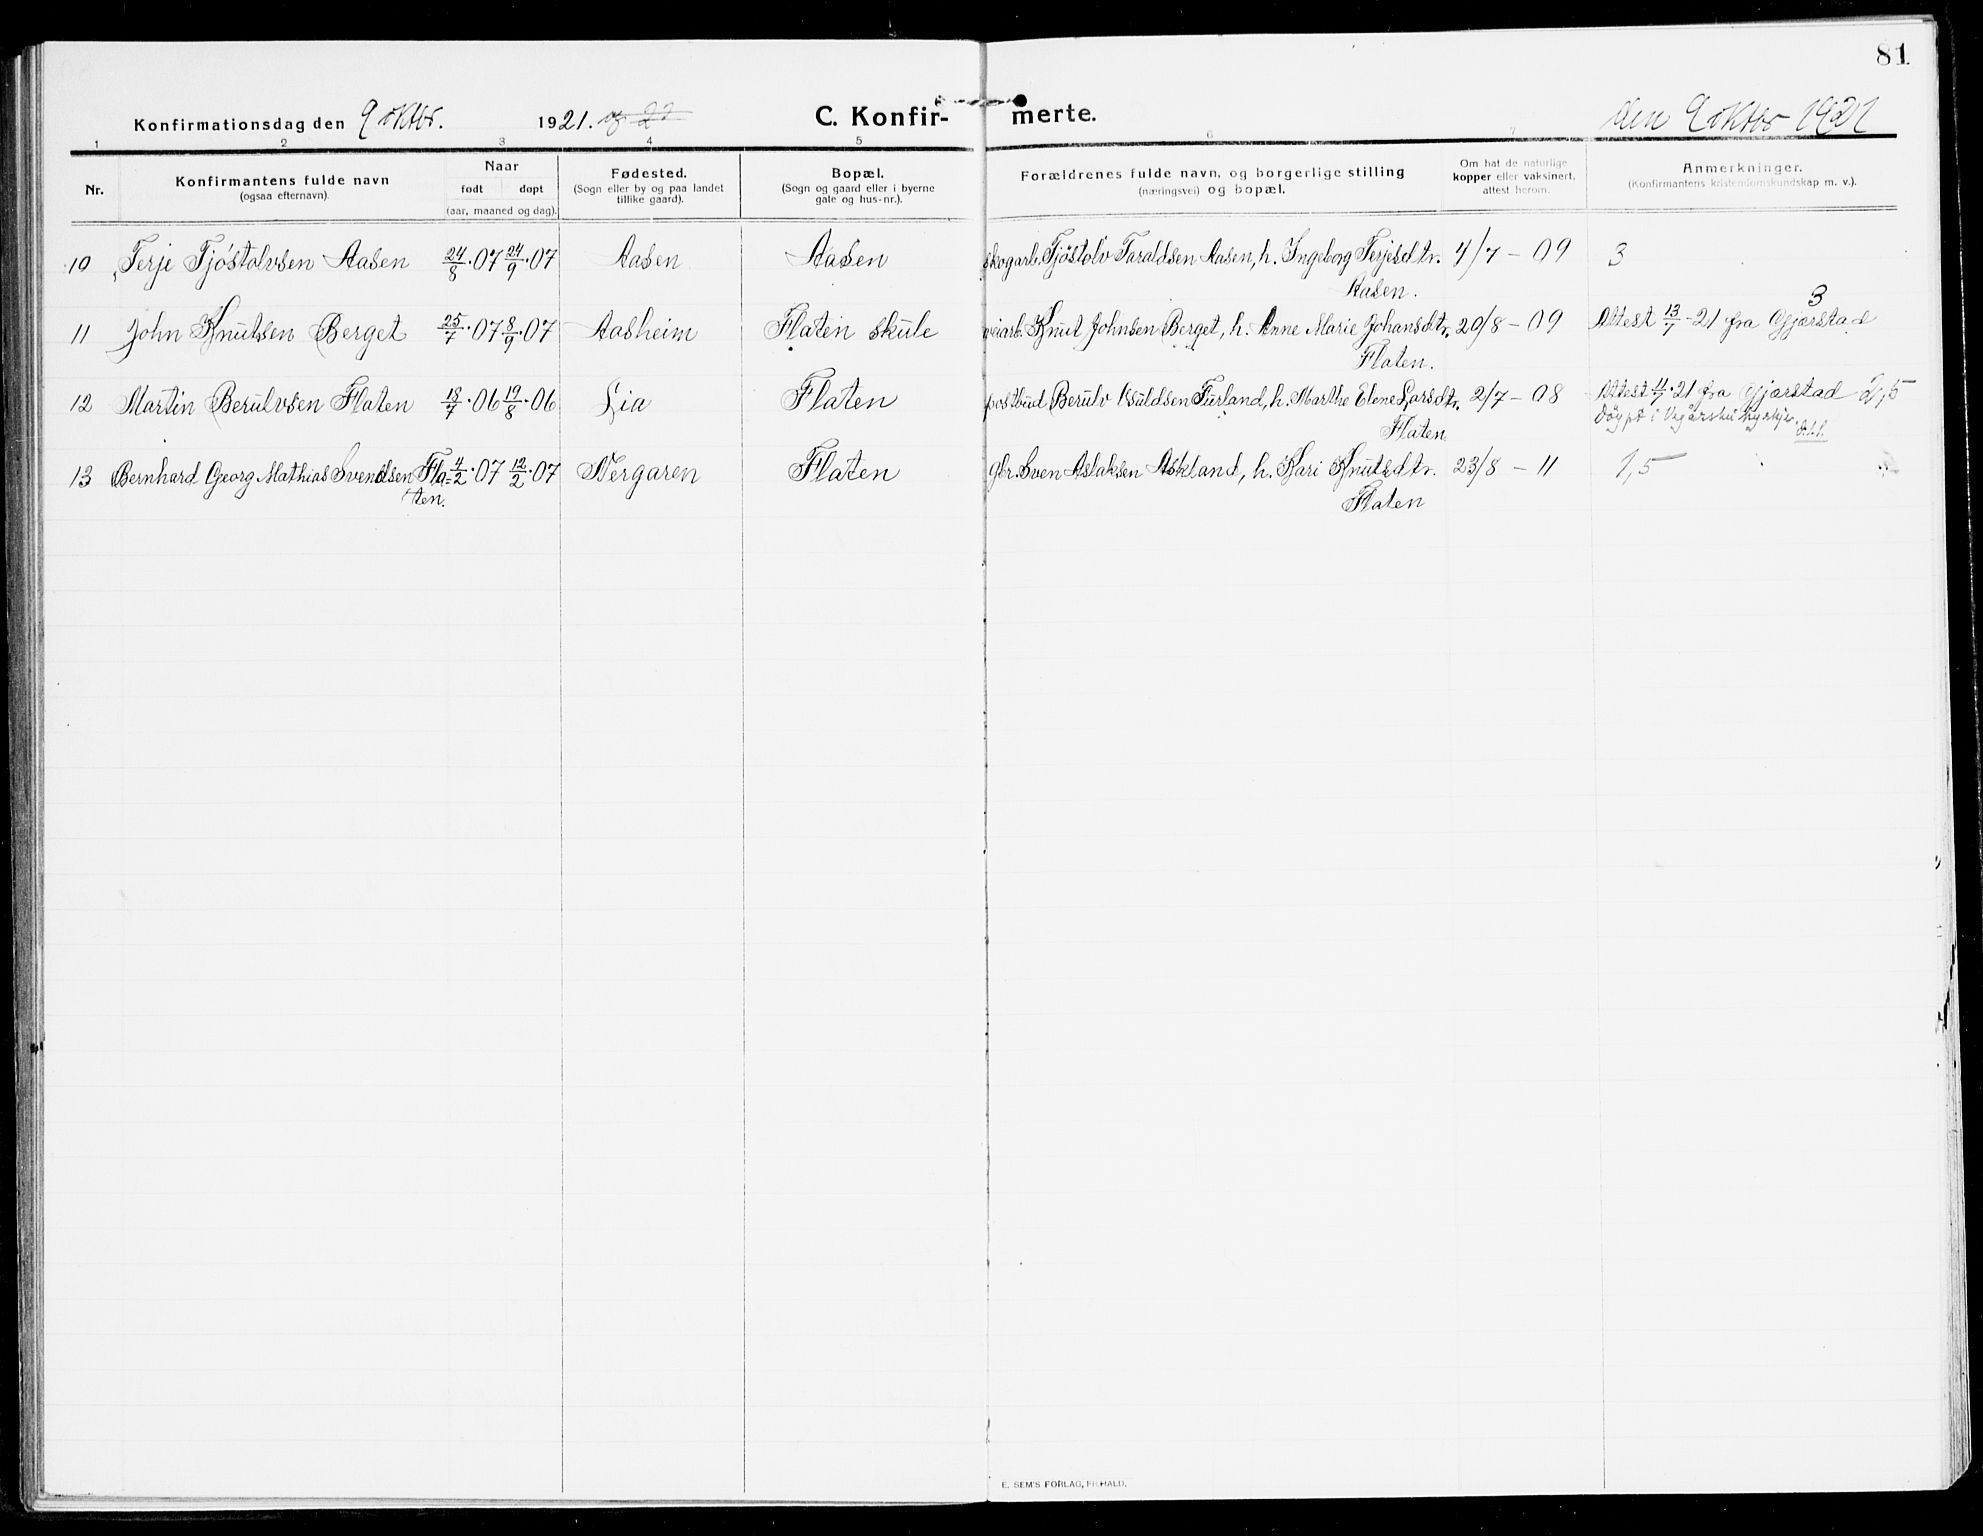 81
Konfirmationsdag den 9 oktbr. 1921. og 22 C. Konfir- merte. den 9 oktbr 1921
1 2 3 4 5 6
Nr. Konfirmantens fulde navn (ogsaa efternavn). Naar født døpt (aar, maaned og dag). Fødested. (Sogn eller by og paa landet tillike gaard). Bopæl. (Sogn og gaard eller i byerne gate og hus-nr.). Forældrenes fulde navn, og borgerlige stilling (næringsvei) og bopæl. Om hat de naturlige kopper eller vaksinert, attest herom. Anmerkninger. (Konfirmantens kristendomskundskap m. v.).
10 Terje Tjøstolvsen Aasen 24/8·07 24/9·07 Aasen Aasen skogarb. Tjøstolv Taraldsen Aasen, h. Ingeborg Terjesdtr. 4/7 - 09 3
Aasen.
11 John Knutsen Berget 25/7·07 8/9·07 Aasheim Flaten skule veiarb. Knut Johnsen Berget, h. Anne Marie Johansdtr. 20/8 - 09 Attest 13/7-21 fra Gjerstad 3
Flaten.
12 Martin Berulvsen Flaten 18/7·06 19/8·06 Lia Flaten postbud Berulv Kuldsen Furland, h. Marthe Elene Larsdtr. 2/7 - 08 Attest 4/7·21 fra Gjerstad 2,5
Flaten. Døypt i Vegårshei kyrkje.
13 Bernhard Georg Mathias Svendsen Fla- 4/2·07 12/2·07 Nergaren Flaten gbr. Sven Aslaksen Askland, h. Kari Knutsdtr. 23/8 - 11 1,5
ten. Flaten
E. SEM'S FORLAG, FR.HALD.